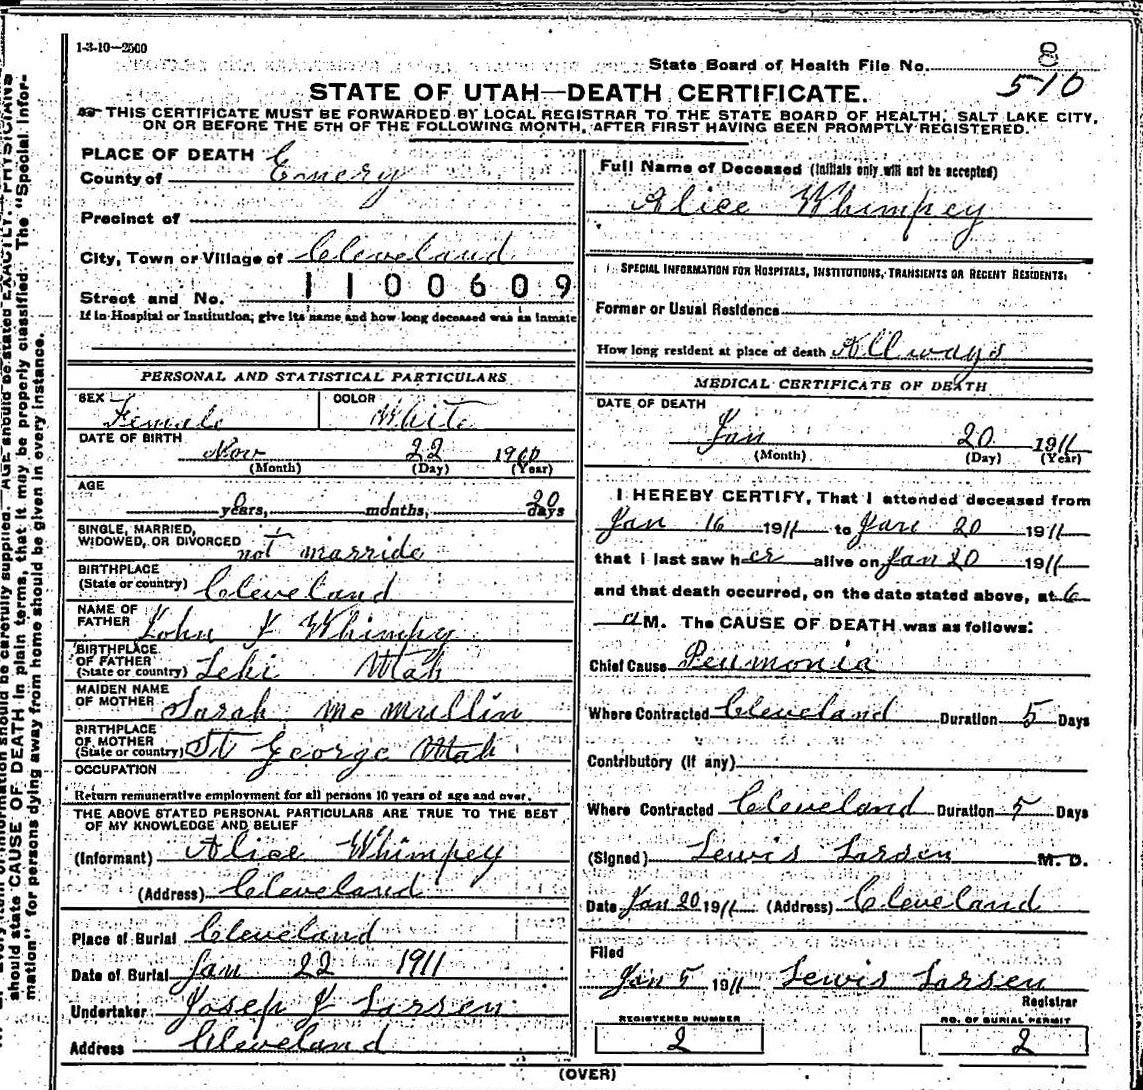 1-3-10—2500
State Board of Health File No. 8
510
STATE OF UTAH—DEATH CERTIFICATE.
THIS CERTIFICATE MUST BE FORWARDED BY LOCAL REGISTRAR TO THE STATE BOARD OF HEALTH, SALT LAKE CITY,
ON OR BEFORE THE 5TH OF THE FOLLOWING MONTH, AFTER FIRST HAVING BEEN PROMPTLY REGISTERED.
PLACE OF DEATH
County of Emery
Precinct of
City, Town or Village of Cleveland
Street and No. 1100609
If in Hospital or Institution, give its name and how long deceased was an inmate
PERSONAL AND STATISTICAL PARTICULARS
SEX COLOR
Female White
DATE OF BIRTH
Nov 22 1910
(Month) (Day) (Year)
AGE
years, months, 20 days
SINGLE, MARRIED,
WIDOWED, OR DIVORCED not marride
BIRTHPLACE
(State or country) Cleveland
NAME OF
FATHER John J Whimpy
BIRTHPLACE
OF FATHER
(State or country) Lehi Utah
MAIDEN NAME
OF MOTHER Sarah Mc Mullin
BIRTHPLACE
OF MOTHER
(State or country) St George Utah
OCCUPATION
Return remunerative employment for all persons 10 years of age and over.
THE ABOVE STATED PERSONAL PARTICULARS ARE TRUE TO THE BEST
OF MY KNOWLEDGE AND BELIEF
(Informant) Alice Whimpey
(Address) Cleveland
Place of Burial Cleveland
Date of Burial Jan 22 1911
Undertaker Josep J Larsen
Address Cleveland
Full Name of Deceased (Initials only will not be accepted)
Alice Whimpey
SPECIAL INFORMATION FOR HOSPITALS, INSTITUTIONS, TRANSIENTS OR RECENT RESIDENTS.
Former or Usual Residence
How long resident at place of death All ways
MEDICAL CERTIFICATE OF DEATH
DATE OF DEATH
Jan 20 1911
(Month) (Day) (Year)
I HEREBY CERTIFY, That I attended deceased from
Jan 16 1911 to Jan 20 1911
that I last saw her alive on Jan 20 1911
and that death occurred, on the date stated above, at 6
a M. The CAUSE OF DEATH was as follows:
Chief Cause Peumonia
Where Contracted Cleveland Duration 5 Days
Contributory (If any)
Where Contracted Cleveland Duration 5 Days
(Signed) Lewis Larsen M. D.
Date Jan 20 1911 (Address) Cleveland
Filed
Jan 5 1911 Lewis Larsen
Registrar
REGISTERED NUMBER NO. OF BURIAL PERMIT
2 2
(OVER)
should state CAUSE OF DEATH in plain terms, that it may be properly classified. The "Special Infor-
mation" for persons dying away from home should be given in every instance.